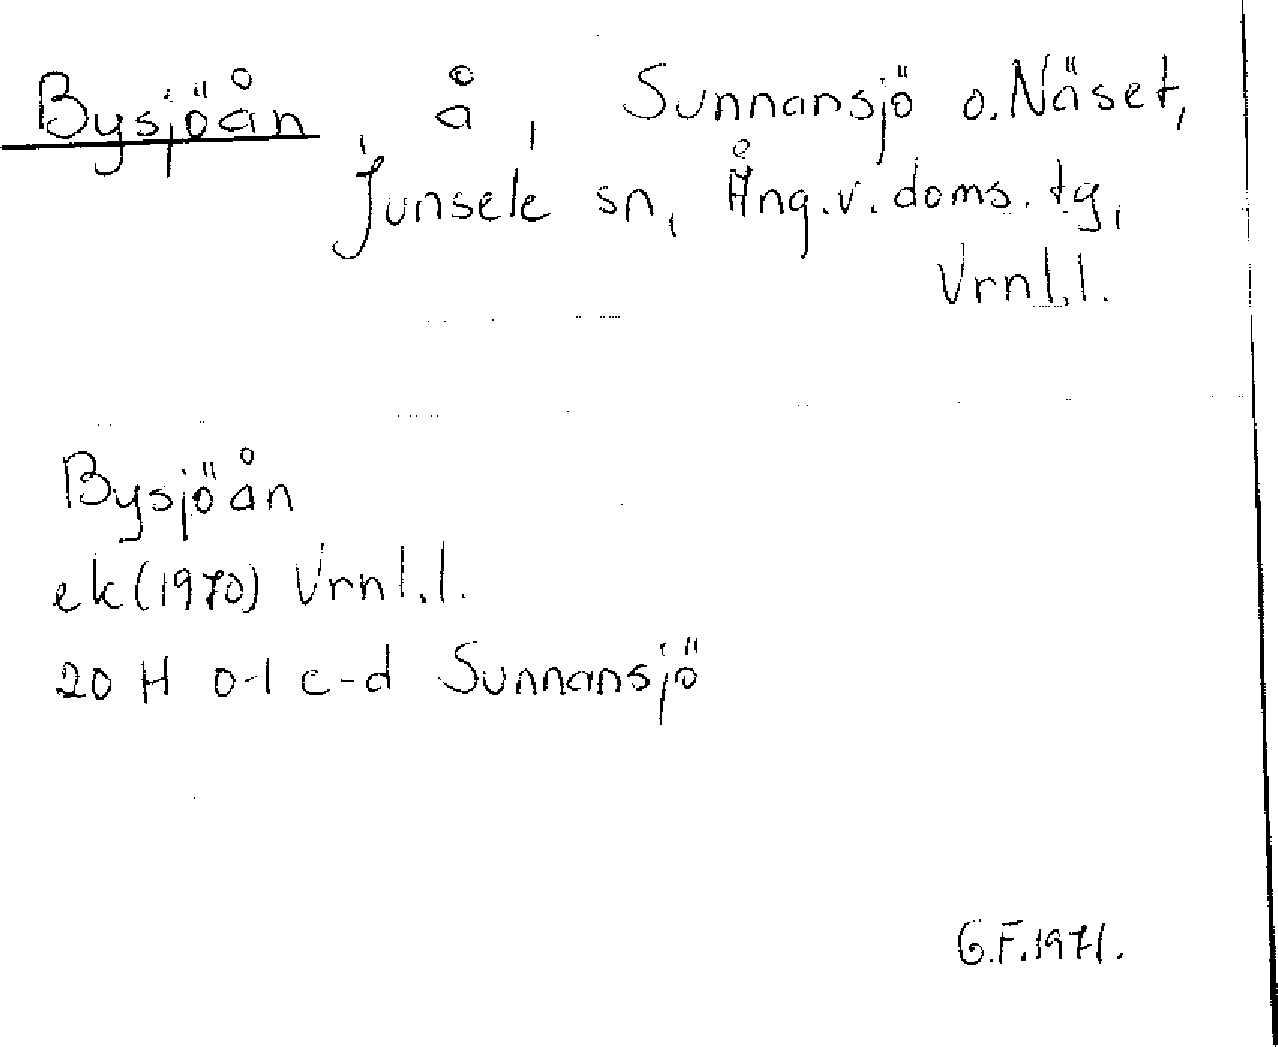 Bysjöån, å, Sunnansjö o. Näset,
Junsele sn, Ång.v.doms.tg,
Vrnl.l.
Bysjöån
ek(1970) Vrnl.l.
20 H 0-1 c-d Sunnansjö
G.F.1971.